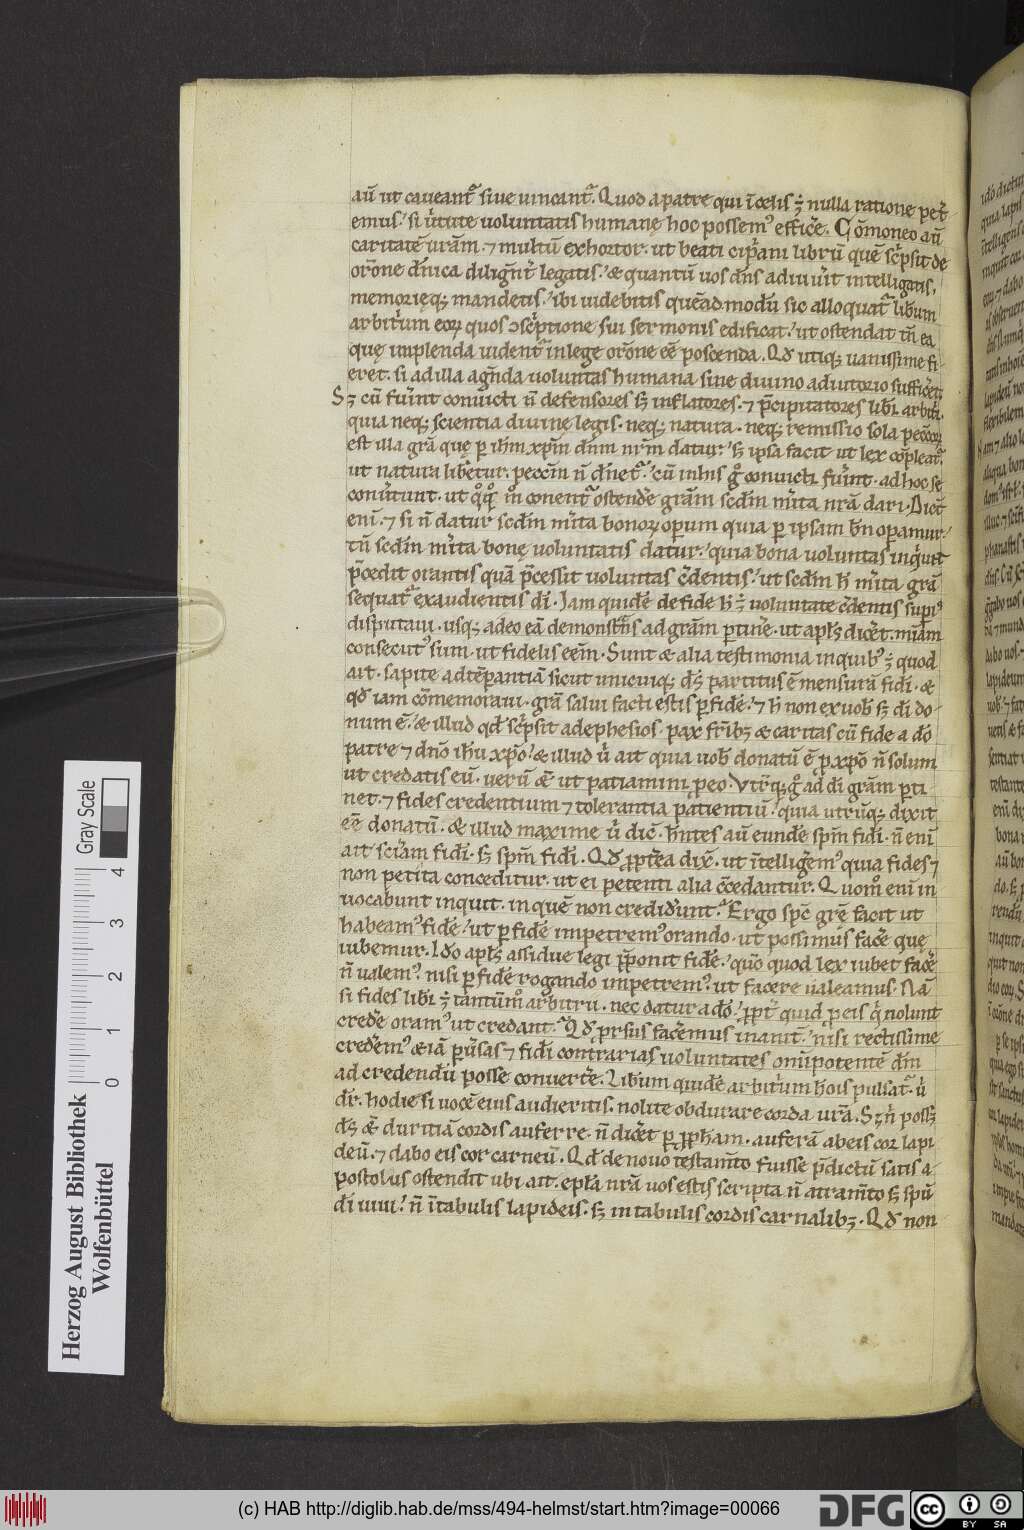 aū ut caueant᷑ siue uincant᷑. Quod a patre qui ī celis ē nulla ratione pet̾
emus. si u̾tute uoluntatis humanę hoc possem᷒ effic̾e. Cōmoneo aū
caritatē ur̄am. ⁊ multū exhortor. ut beati cip̾ani librū quē sc̾psit de
or̄one dn̄ica dilign̄t̾ legatis. & quantū uos dn̄s adiuu̾it intelligatis.
memorięq; mandetis. ibi uidebitis quēadmodū sic alloquat᷑ lib̾um
arbit̾um eoꝝ quos ↄsc̾ptione sui sermonis edificat. ut ostendat tn̄ ea
quę implenda uident᷑ in lege or̄one eē poscenda. Qd̄ utiq; uanissime fi
eret. si ad illa agn̄da uoluntas humana sine diuino adiutorio suffic̾et.
Sꝫ cū fu̾int conuicti n̄ defensores sꝫ inflatores. ⁊ p̄cipitatores lib̾i arbit̾i.
quia neq; scientia diuinę legis. neq; natura. neq; remissio sola pecc̄oꝝ
est illa gr̄a quę ꝑ ih̄m xp̄m dn̄m nr̄m datur. sꝫ ipsa facit ut lex cōpleat᷑.
ut natura lib̾etur. pecc̄m n̄ dn̄et᷑. cū in his g̊ conuicti fu̾int. ad hoc se
conu̾tunt. ut q̊q̊ m̊ conent᷑ ostend̾e gr̄am scd̄m m̾ita nr̄a dari. Dic̄t
enī. ⁊ si n̄ datur scd̄m m̾ita bonoꝝ oꝑum quia ꝑ ipsam bn̄ oꝑamur.
tn̄ scd̄m m̾ita bonę uoluntatis datur. quia bona uoluntas inq̾unt
p̄cedit orantis quā p̄cessit uoluntas c̾dentis. ut scd̄m h̄ m̾ita gr̄a
sequat᷑ exaudientis dī. Iam quidē de fide h̄ ē uoluntate c̾dentis sup̾i᷒
disputaui. usq; adeo eā demonst̾ns ad gr̄am ꝑtin̾e. ut apl̄s dic̾et. mīam
consecut᷒ sum. ut fidelis eēm. Sunt & alia testimonia in quib᷒ ē quod
ait. sapite ad tēꝑantiā sicut unicuiq; ds̄ partitus ē mensurā fidī. &
qd̄ iam cōmemoraui. gr̄a salui facti estis ꝑ fidē. ⁊ h̄ non ex uob̄ sꝫ dī do
num ē. & illud qd̄ sc̾psit ad ephesios. pax fr̄ibꝫ & caritas cū fide a dō
patre ⁊ dn̄o ih̄u xp̄o. & illud u̾ ait quia uob̄ donatū ē ꝓ xp̄o n̄ solum
ut credatis eū. uerū &̄ ut patiamini ꝓ eo. Vtr̾q; g̊ ad dī gr̄am ꝑti
net. ⁊ fides credentium ⁊ tolerantia patientiū. quia utrūq; dixit
eē donatū. & illud maxime u̾ dic̄. hn̄tes aū eundē spm̄ fidī. n̄ enī
ait sciam fidī. sꝫ spm̄ fidī. Qd̄ ꝓpt̾ea dix̄. ut ītelligem᷒ quia fides ⁊
non petita conceditur. ut ei petenti alia c̄cedantur. Quom̊ enī in
uocabunt inquit. in quē non credid̾unt. Ergo spc̄ grę̄ facit ut
habeam᷒ fidē. ut ꝑ fidē impetrem᷒ orando. ut possimus fac̾e quę
iubemur. Ido apl̄s assidue legi p̄ponit fidē. qm̄o quod lex iubet fac̾e
n̄ ualem᷒. nisi ꝑ fidē rogando impetrem᷒. ut facere ualeamus. Nā
si fides lib̾i ē tantūm̊ arbitrii. nec datur a dō. ꝓpt̾ quid ꝓ eis q̾ nolunt
cred̾e oram᷒ ut credant. Qd̄ ꝓrsus fac̾emus inanit̄. nisi rectissime
cred̾em᷒ & iā ꝑu̾sas ⁊ fidī contrarias uoluntates omīpotentē dm̄
ad credendū posse conuert̾e. Lib̾um quidē arbit̾um hoīs pulsat᷑. u̾
dr̄. hodie si uocē eius audieritis. nolite obdurare corda ur̄a. Sꝫ n̄ poss&
ds̄ &̄ duritiā cordis auferre. n̄ dic̾et ꝑ ꝓpham. auferā ab eis cor lapi
deū. ⁊ dabo eis cor carneū. Qd̄ de nouo testam̄to fuisse p̄dictū satis a
postolus ostendit ubi ait. epl̄a nr̄a uos estis scripta n̄ atram̄to sꝫ spū
dī uiui. n̄ ī tabulis lapideis. sꝫ in tabulis cordis carnalibꝫ. Qd̄ non
Herzog August Bibliothek
Wolfenbüttel
Gray Scale
0 1 2 3 4
(c) HAB http://diglib.hab.de/mss/494-helmst/start.htm?image=00066
DFG
cc BY SA